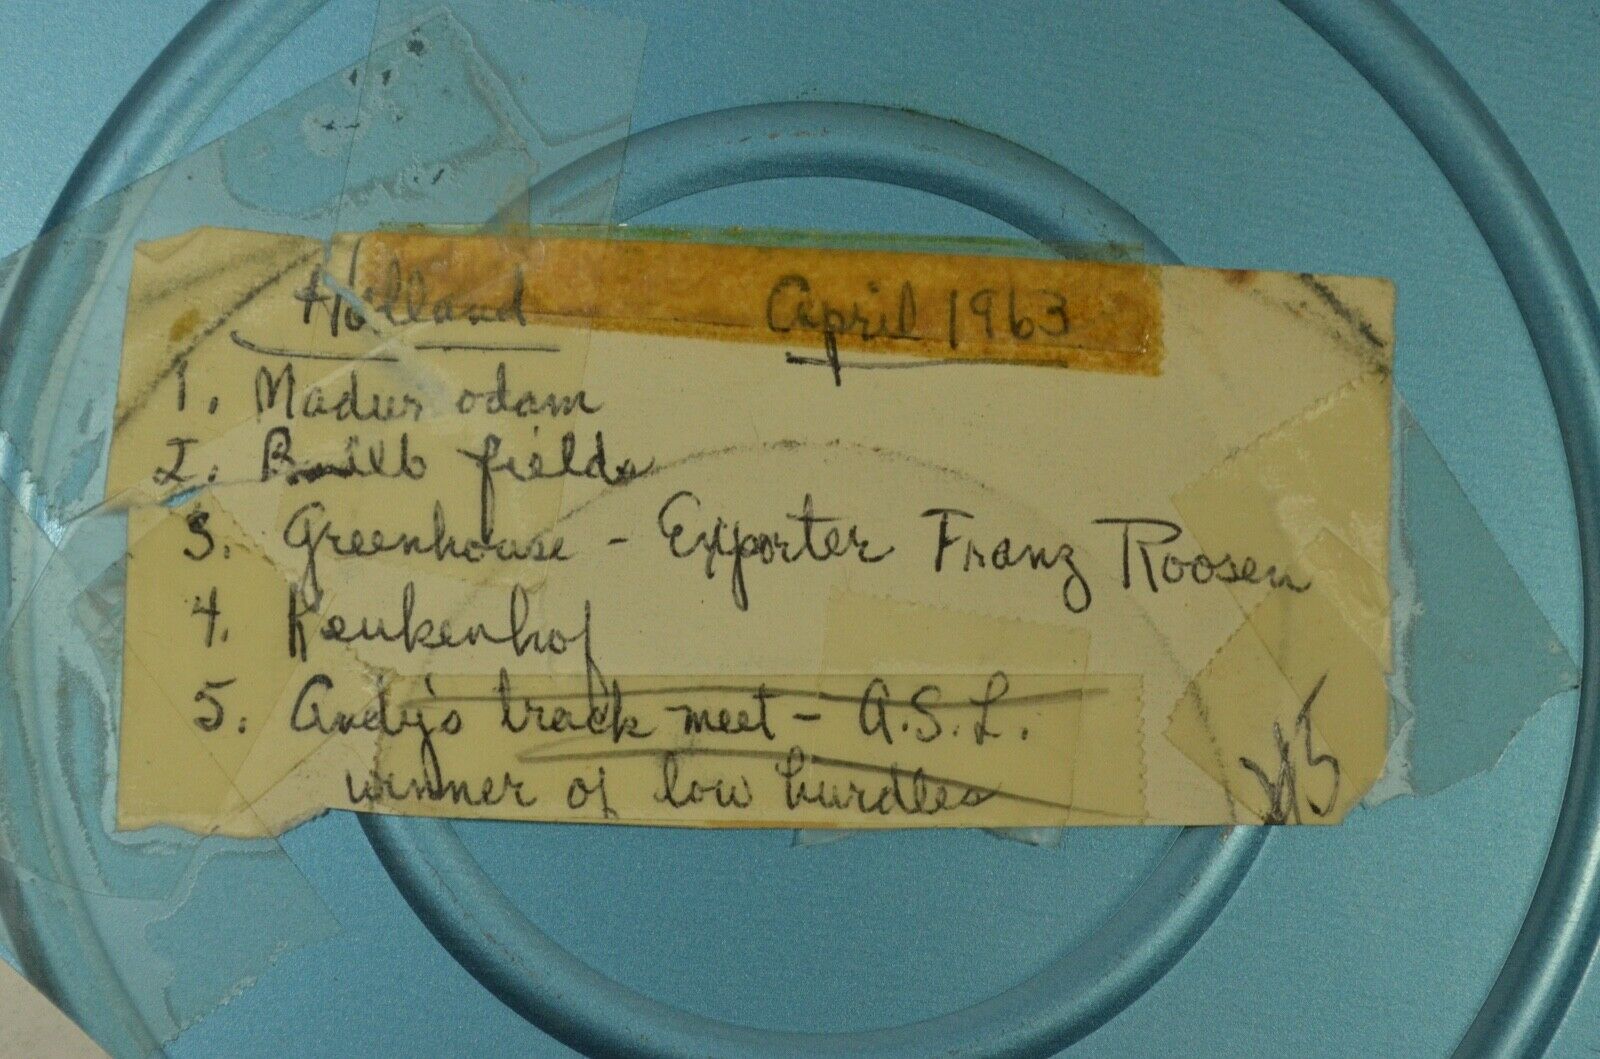 Holland April 1963
1. Madur odam
2. Builb fields
3. Greenhouse - Exporter Franz Roosen
4. Keukenhof
5. Andy's track meet - A.S.L.
winner of low hurdles